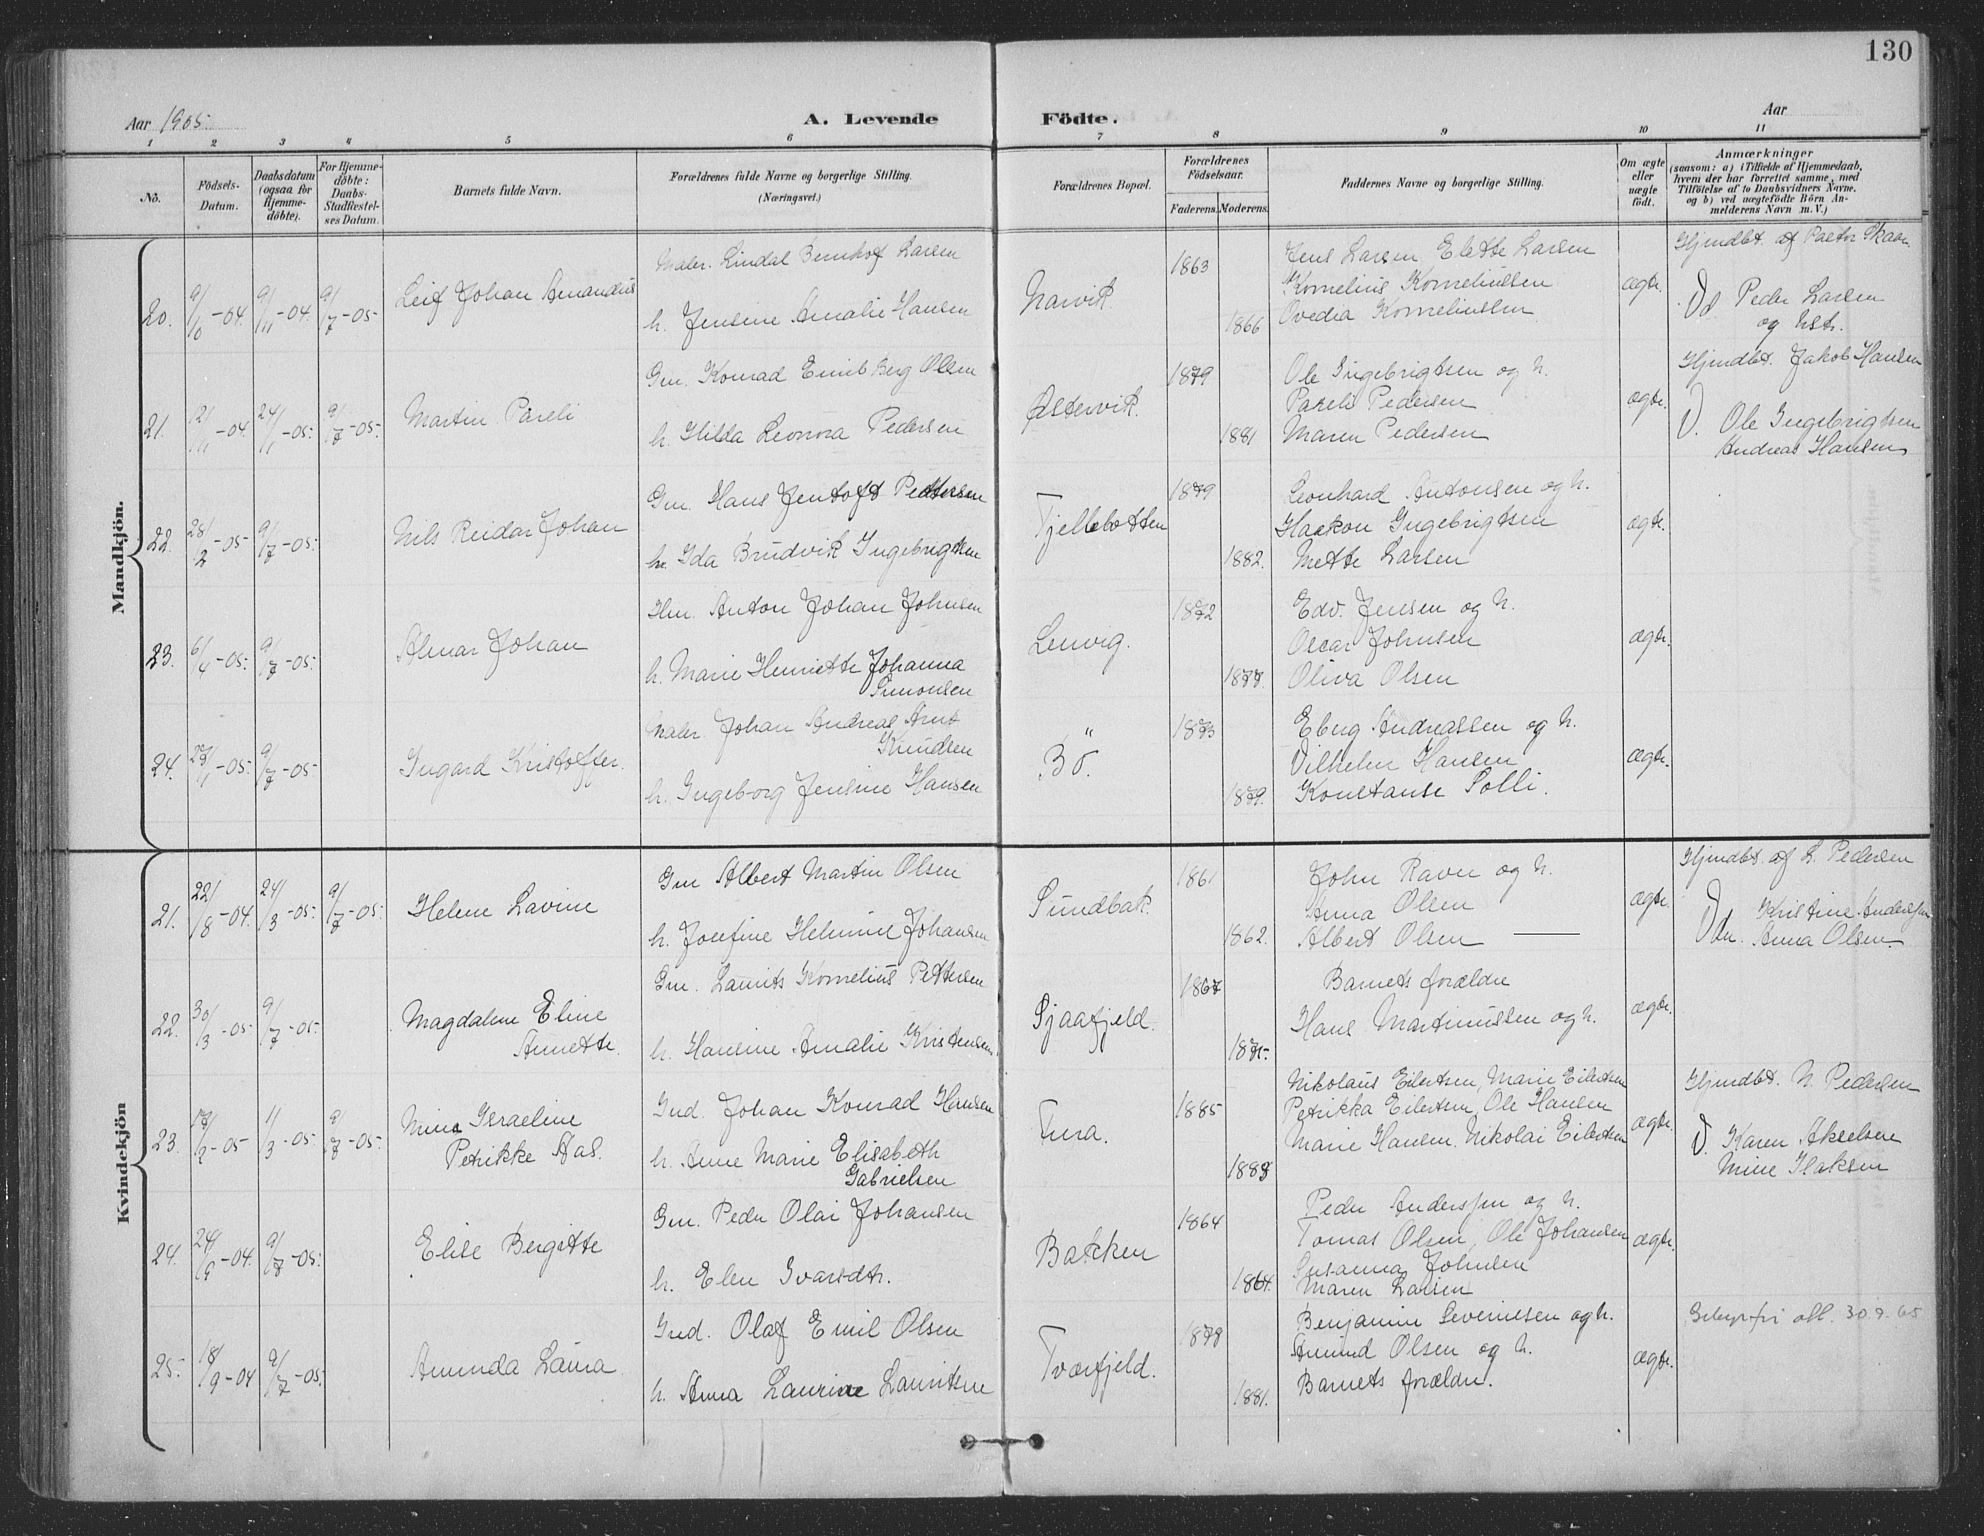 130
Aar 1905. A. Levende Födte. Aar
1 2 3 4 5 6 7 8 9 10 11
No. Födsels-Datum. Daabsdatum (ogsaa for Hjemmedöbte). For Hjemmedöbte: Daabs-Stadfæstelses Datum. Barnets fulde Navn. Forældrenes fulde Navne og borgerlige Stilling. (Næringsvei.) Forældrenes Bopæl. Forældrenes Födselsaar. Faderens. Moderens. Faddernes Navne og borgerlige Stilling. Om ægte eller uægte födt. Anmærkninger (saasom: a) i Tilfælde af Hjemmedaab, hvem der har forrettet samme, med Tilföielse af to Daabsvidners Navne. og b) ved uægtefödte Börn Anmelderens Navn m. V.)
Mandkjön.
Maler. Lindal Bernhof Larsen 1863 Jens Larsen Elette Larsen Hjmdbt. af Pastor Skaar
20. 9/10-04. 9/11-04. 9/7-05. Leif Johan Amandus Narvik Kornelius Korneliussen ægte. Vd Peder Larsen
h. Jensine Amalie Hansen 1866 Ovedia Korneliussen og hstr.
Gm. Konrad Emil Berg Olsen 1879 Ole Ingebrigtsen og h. Hjmdbt. Jakob Hansen
21. 2/11-04. 24/1-05. 9/7-05. Martin Pareli Østervik. Pareli Pedersen ægte. V. Ole Ingebrigtsen
h. Hilda Leonora Pedersen 1881 Maren Pedersen Andreas Hansen
Gm. Hans Jentoft Pettersen 1879 Leonhard Antonsen og h.
22. 28/2-05 9/7-05. Nils Reidar Johan Tjeldebotten Haakon Ingebrigtsen ægte.
h. Ida Brudvik Ingebrigtsen 1882. Mette Larsen
Hm. Anton Johan Johnsen 1872 Edv. Jensen og h.
23. 6/4-05. 9/7-05. Almar Johan Lenvig. Oscar Johnsen ægte.
h. Marie Henriette Johanna Simonsen 1877. Oliva Olsen
Maler. Johan Andreas Arnt Knudsen 1873 Eberg Andreassen og h.
24. 27/1-05. 9/7-05. Ingard Kristoffer. Bö. Vilhelm Hansen ægte.
h. Ingeborg Jensine Hansen 1879. Konstanse Solli.
Kvindekjön
Gm Albert Martin Olsen 1861 John Ravn og h. Hjmdbt. af L. Pedersen
21. 22/8-04. 24/3-05. 9/7-05. Helene Lavine Sundbak. Anna Olsen ægte. Vdn. Kristine Anderssen
h. Josefine Helmine Johansen 1862. Albert Olsen —— Anna Olsen.
Gm. Laurits Kornelius Pettersen 1867 Barnets forældre
22. 30/3-05. 9/7-05. Magdalene Eline Annette. Sjaafjeld. Hans Martinussen og h. ægte.
h. Hansine Amalie Kristensen 1875.
Ind. Johan Konrad Hansen 1885 Nikolaus Eilertsen, Marie Eilertsen Hjmdbt. N. Pedersen
23. 17/2-05 11/3-05. 9/7-05. Mina Israeline Petrikke Aas. Petrikka Eilertsen, Ole Hansen ægte. V. Karen Akselsen
h. Anne Marie Elisabeth Gabrielsen 1883 Marie Hansen, Nikolai Eilertsen Mine Isaksen
Gm. Peder Olai Johansen 1864 Peder Anderssen og h.
24. 24/9-04. 9/7-05. Elise Bergitte Bakken Tomas Olsen, Ole Johansen ægte.
h. Elen Ivarsdtr. 1864. Susanna Johnsen
Maren Larsen
Ind. Olaf Emil Olsen 1879 Benjamin Severinsen og h. Gebyrfri att. 30.9.65
25. 18/9-04 9/7-05. Amunda Laura Tværfjeld. Amund Olsen og h. ægte.
h. Anna Laurine Lauritsen 1881. Barnets forældre.